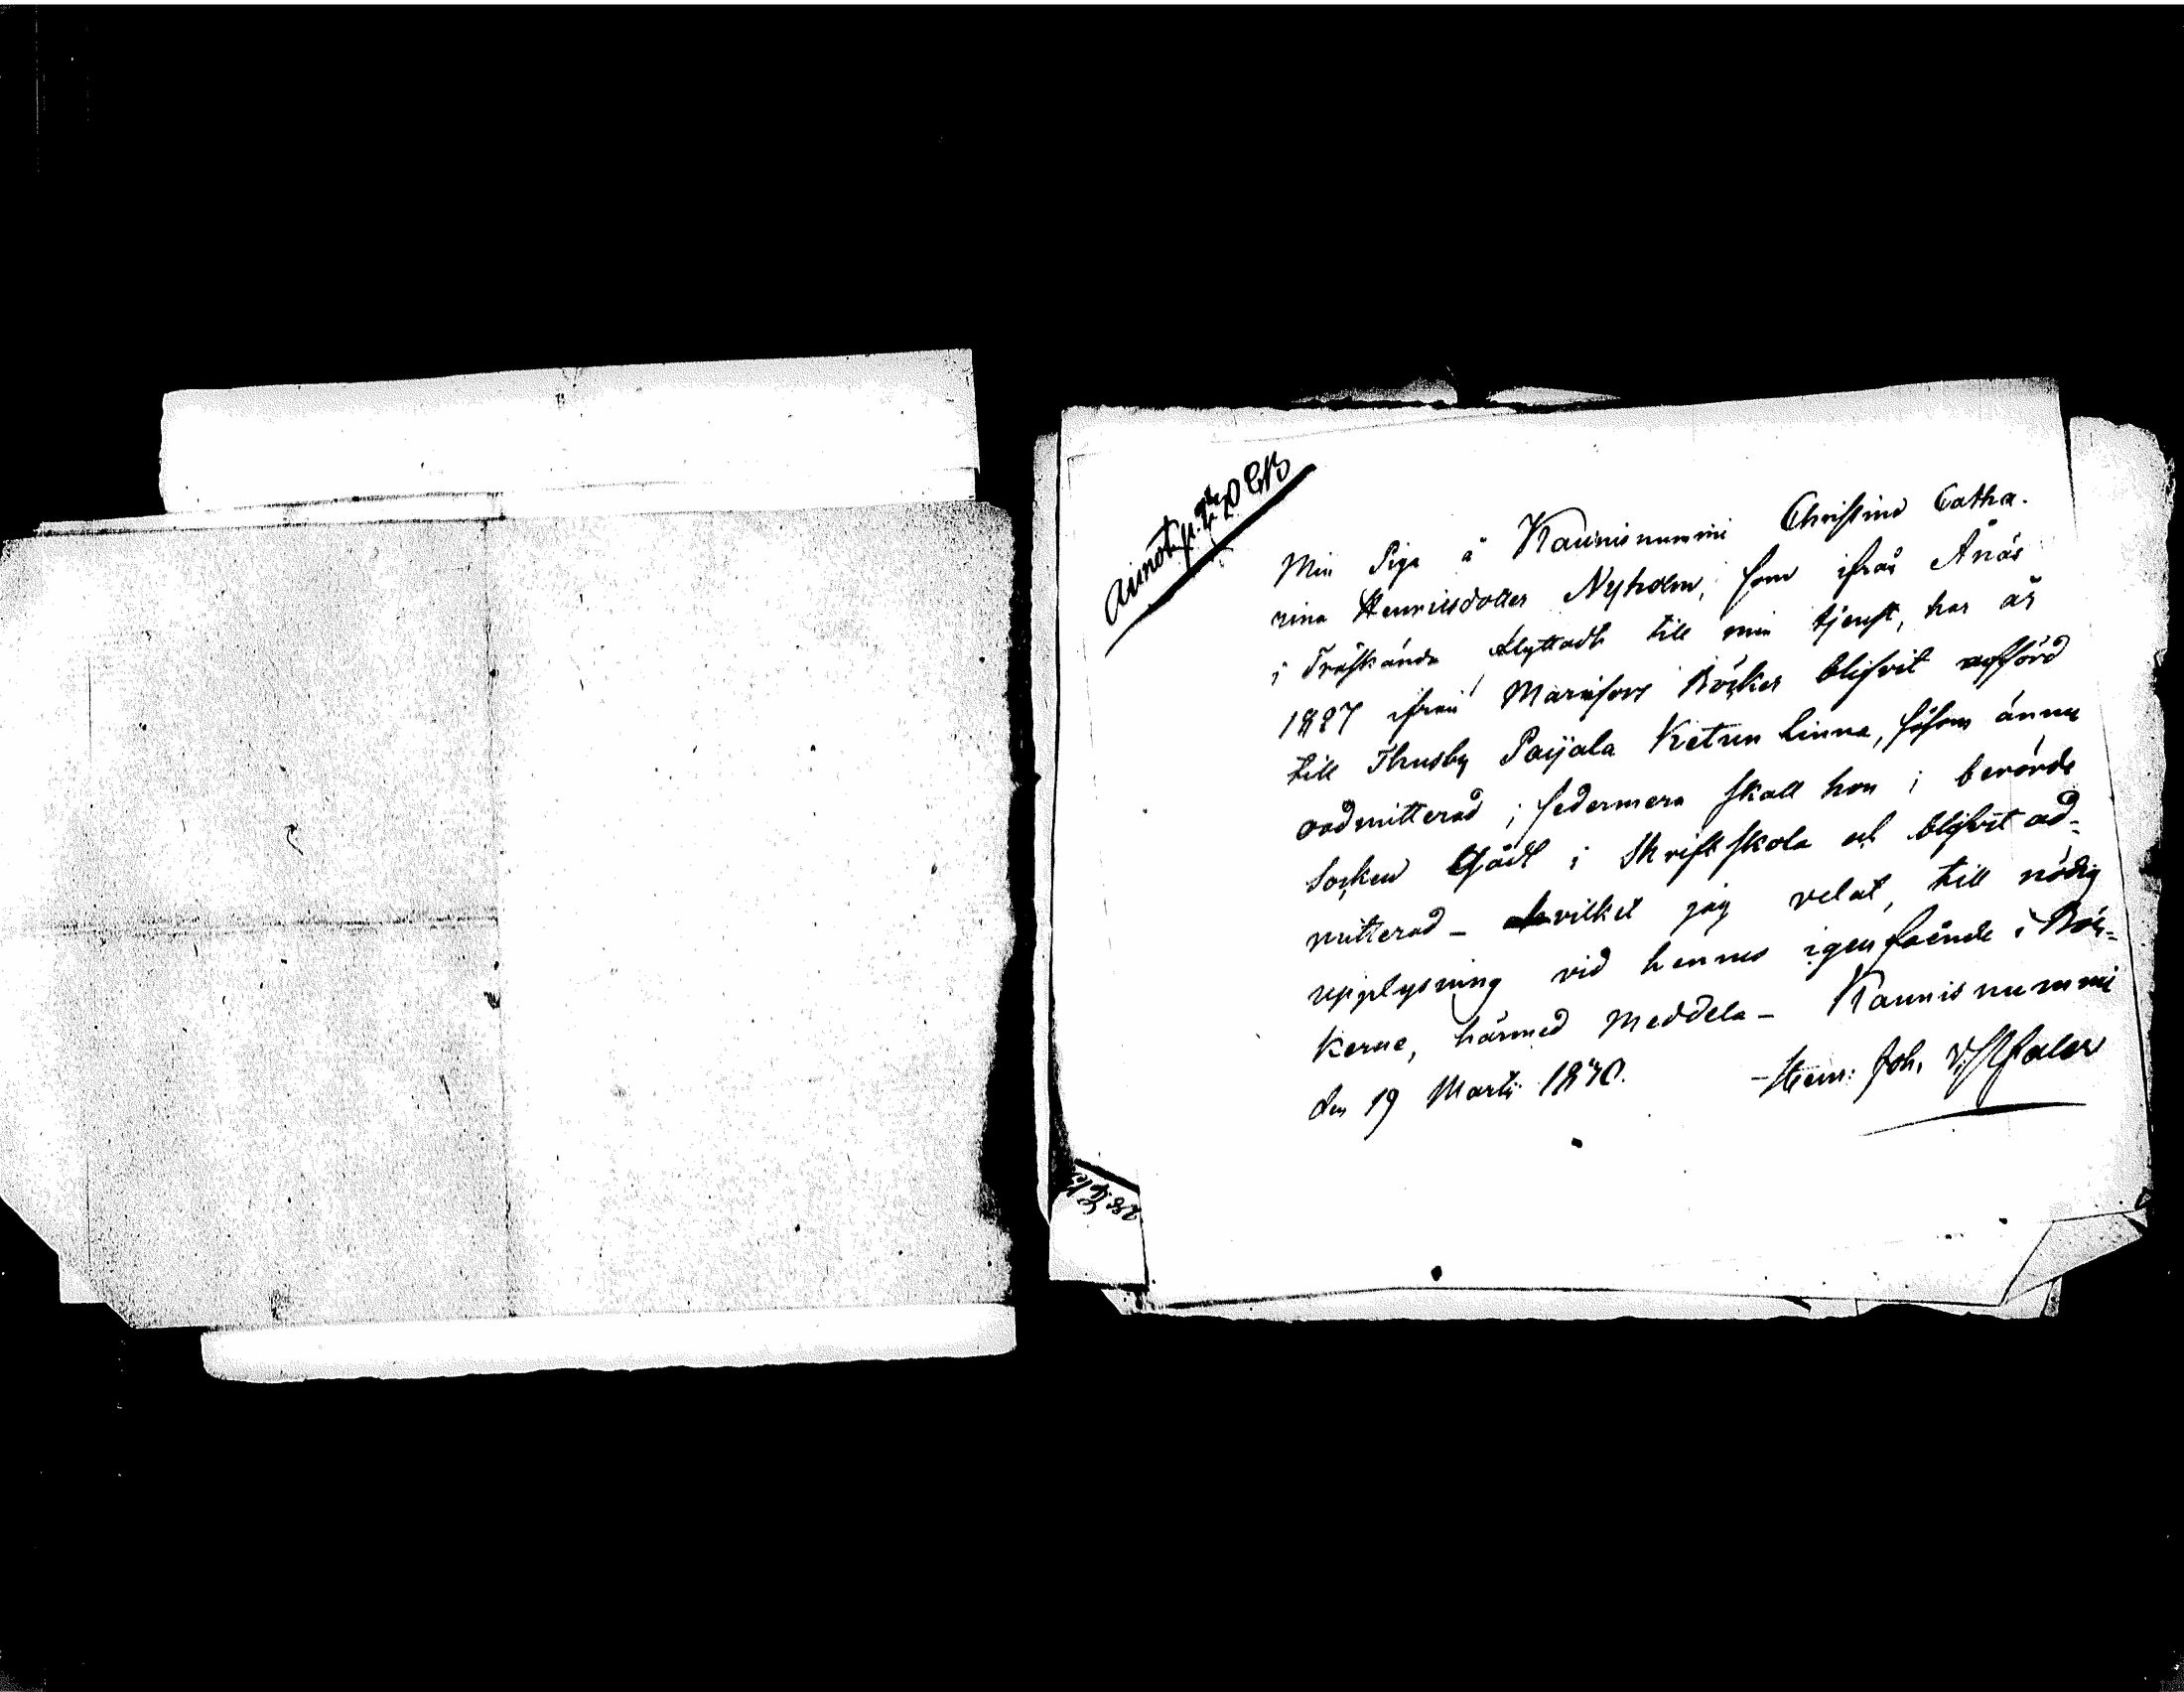 Min Piga å Kaunisnummi Christina Catha-
rina Henricsdotter Nyholm, som ifrån Ånäs
i Träskända flyttadt till min tjenst, har år
1827 ifrån Mariefors Böcker blifvit uppförd
till Thusby Paijala Ketun linna, såsom ännu
oadmitterad; sedermera skall hon i berörde
Socken Gådt i Skriftskola och blifvit ad-
mitterad - hvilket jag velat, till nödig
upplysning vid hennes igenfående i Böc-
kerne, härmed meddela - Kaunisnummi
den 19 Martii 1830.
Henr: Joh.